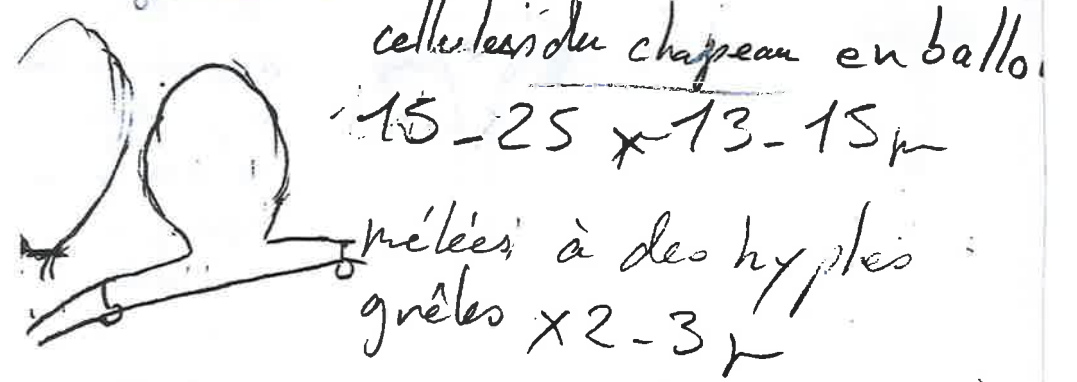 cellules du chapeau en ballo
15-25 x 13-15µ
mélées à des hyphes
grêles x2-3 µ